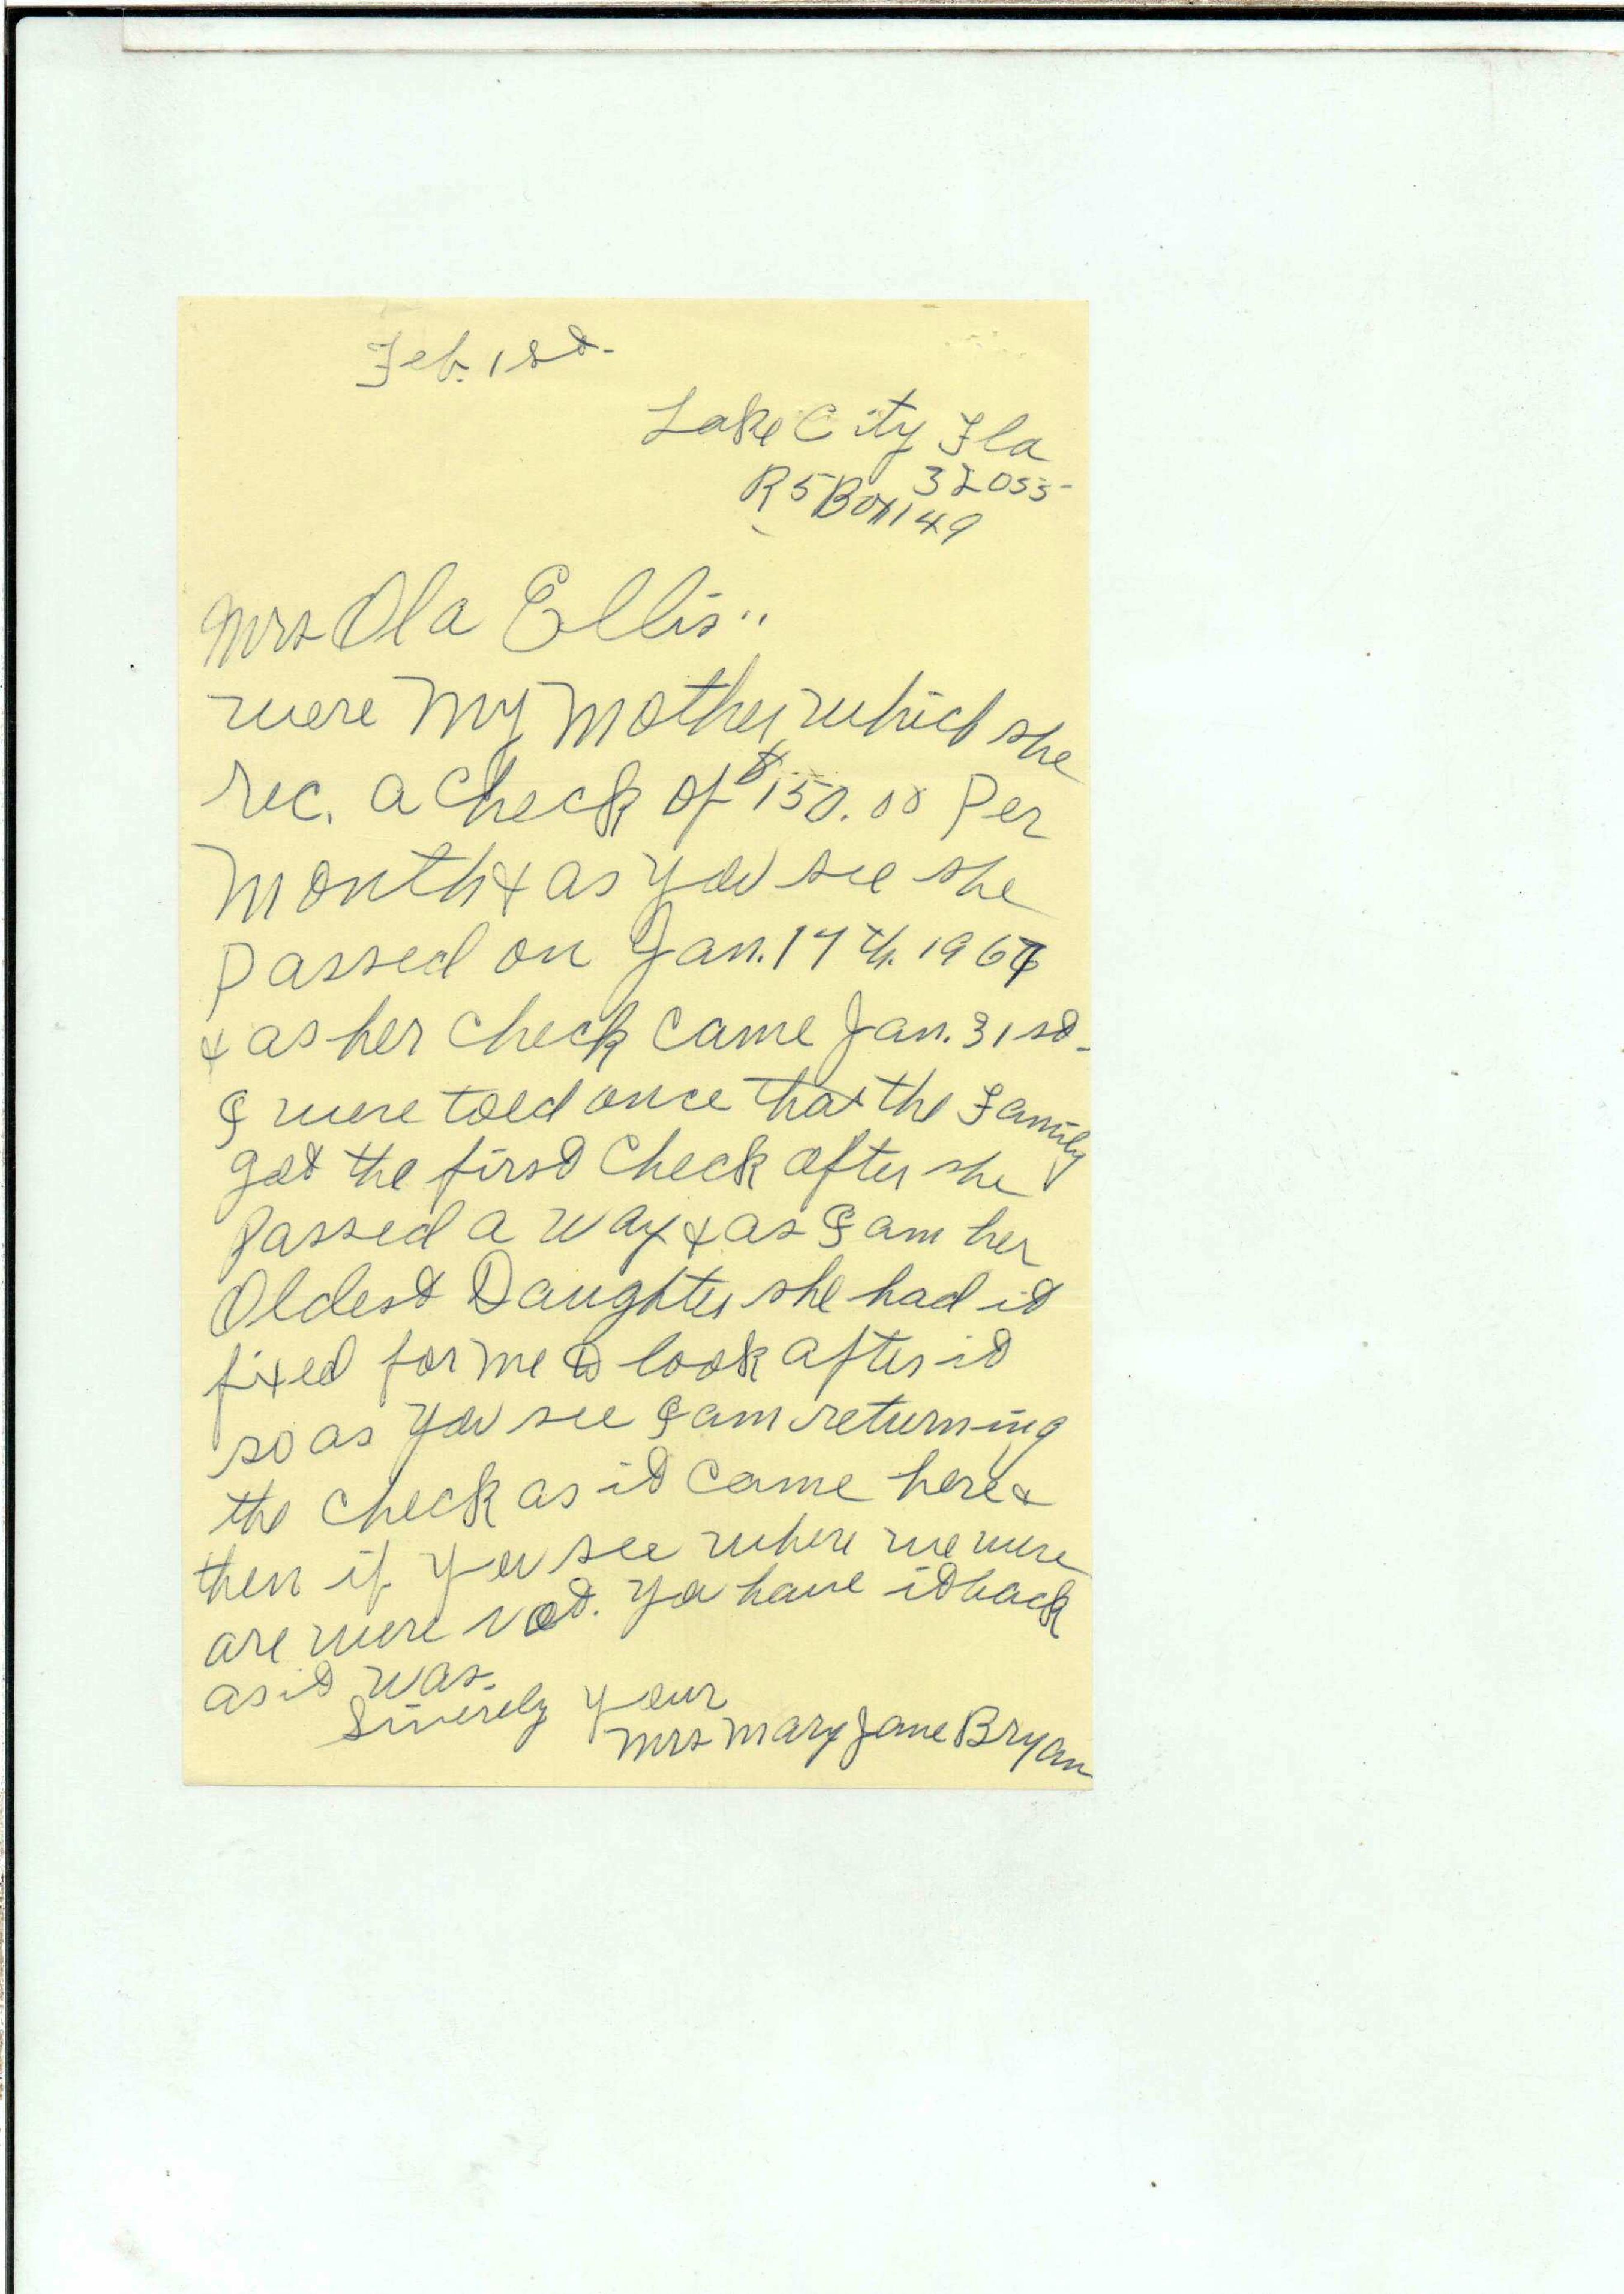 Feb. 1st.
Lake City Fla
32055
R 5 Box 149
Mrs Ola Ellis..
were My Mother, which she
rec. a Check of $150.00 Per
Month & as you see she
Passed on Jan. 17th. 1967
& as her Check Came Jan. 31st.
I were toed once that the Family
got the first Check after she
passed a way & as I am her
Oldest Daughter she had it
fixed for me to look after it
so as you see I am returning
the Check as it Came here &
then if you see where we were
are were not. Ya have it back
as it was.
Sinerely your
Mrs Mary Jane Bryan